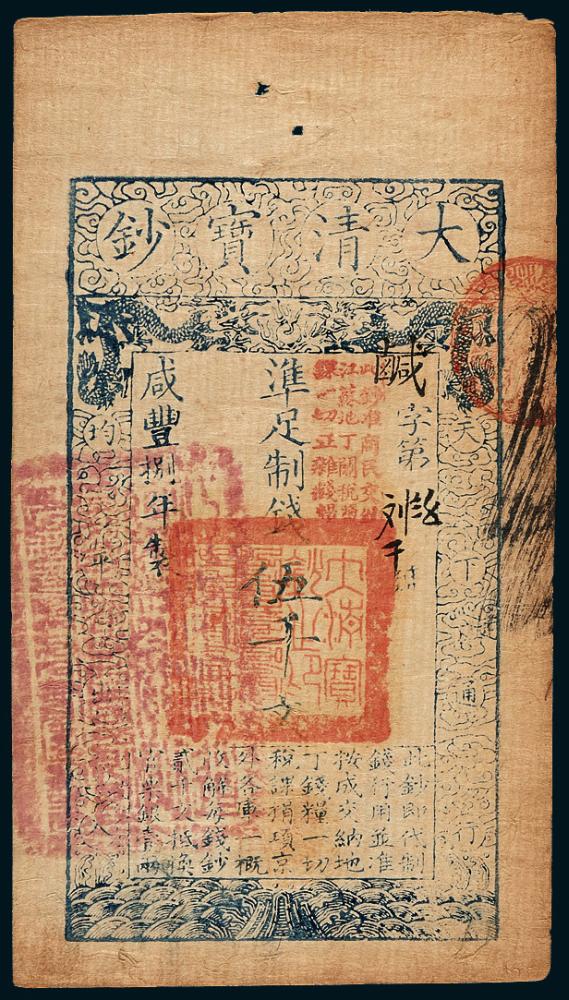 大清寶鈔
天下通行
鹹字第
號
此鈔准商民交納
江蘇地丁關稅鹽
課一切正雜錢糧
準足制錢伍千文
咸豐捌年製
均平出入
此鈔即代制
錢行用並准
按成交納地
丁錢糧一切
稅課捐項京
外各庫一概
收解每錢鈔
貳千文抵換
官票銀壹兩